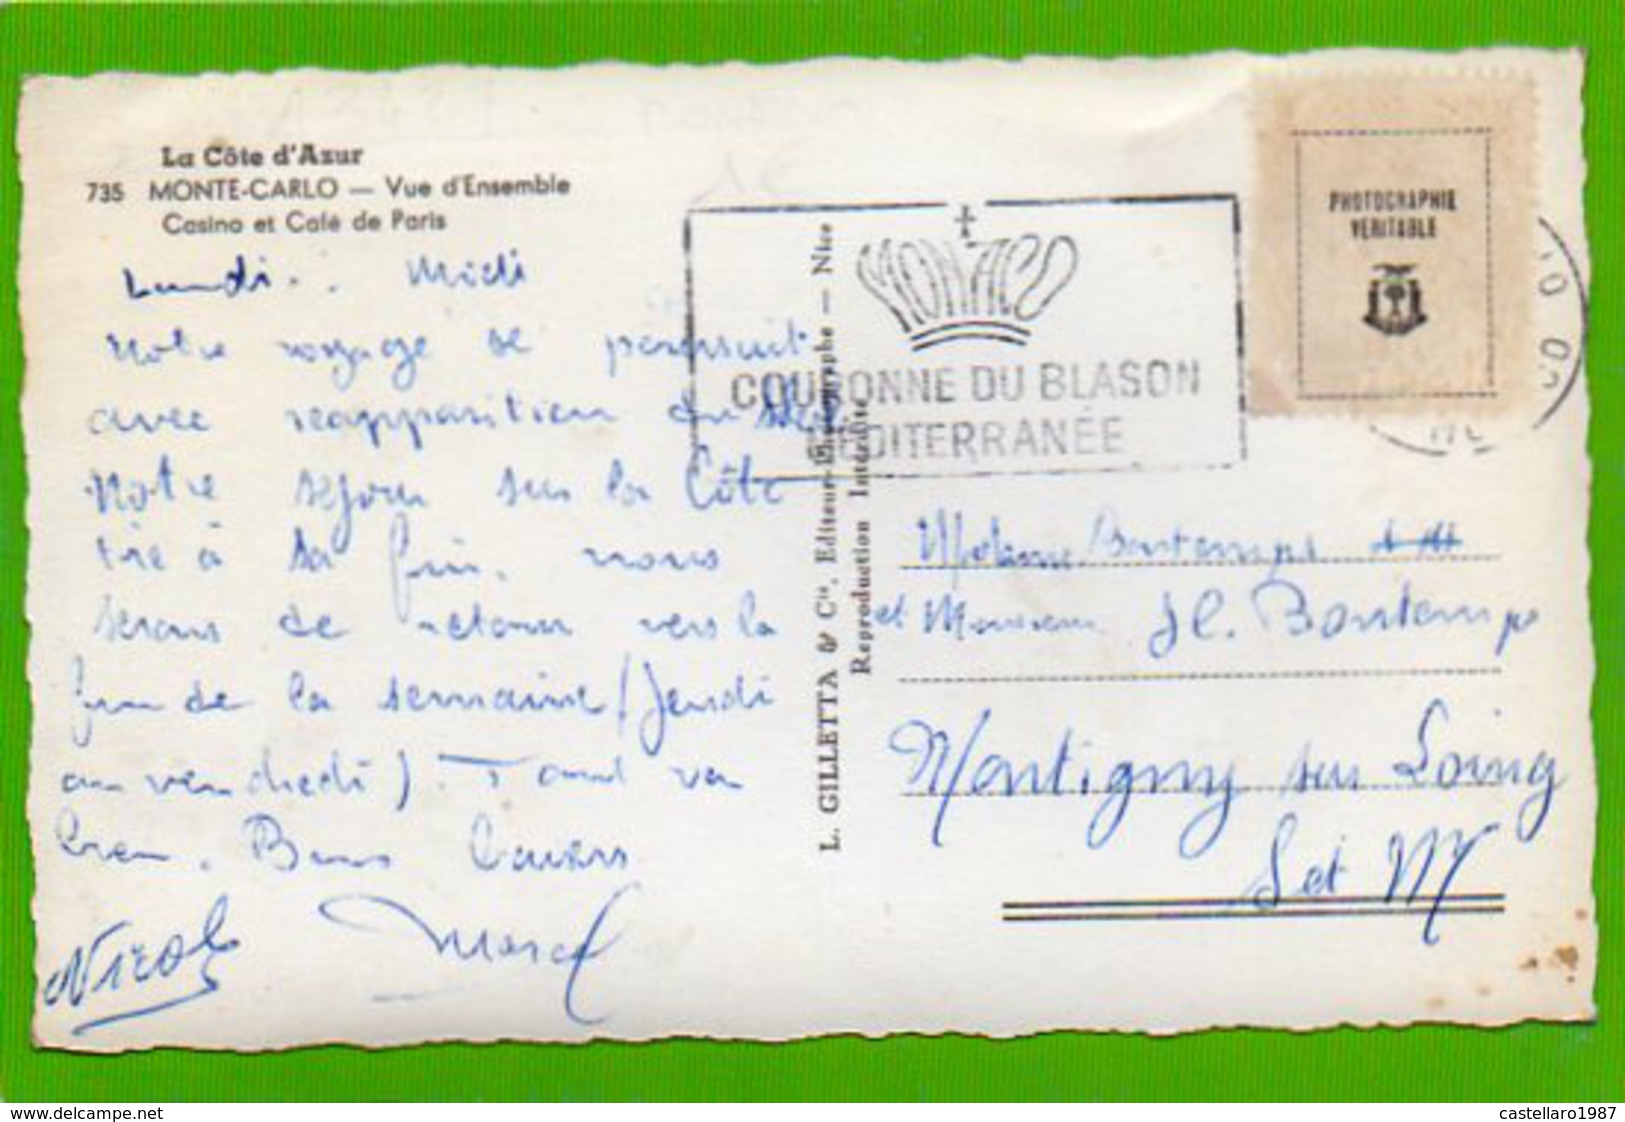 La Côte d'Azur
735 MONTE-CARLO — Vue d'Ensemble
Casino et Café de Paris
Lundi.. Midi
Notre voyage se poursuit
avec réapparition du soleil
Notre séjour sur la Côte
tire à sa fin. nous
serons de retour vers la
fin de la semaine (Jeudi
ou vendredi). Tout va
bien. Bons baisers
Nicole Marcel
L. GILLETTA & Cie, Editeur-Photographe — Nice
Reproduction Interdite
MONACO
COURONNE DU BLASON
MÉDITERRANÉE
PHOTOGRAPHIE
VERITABLE
Madame Bontemps
et Monsieur H. Bontemps
Montigny sur Loing
S et M
delcampe.net
castellaro1987